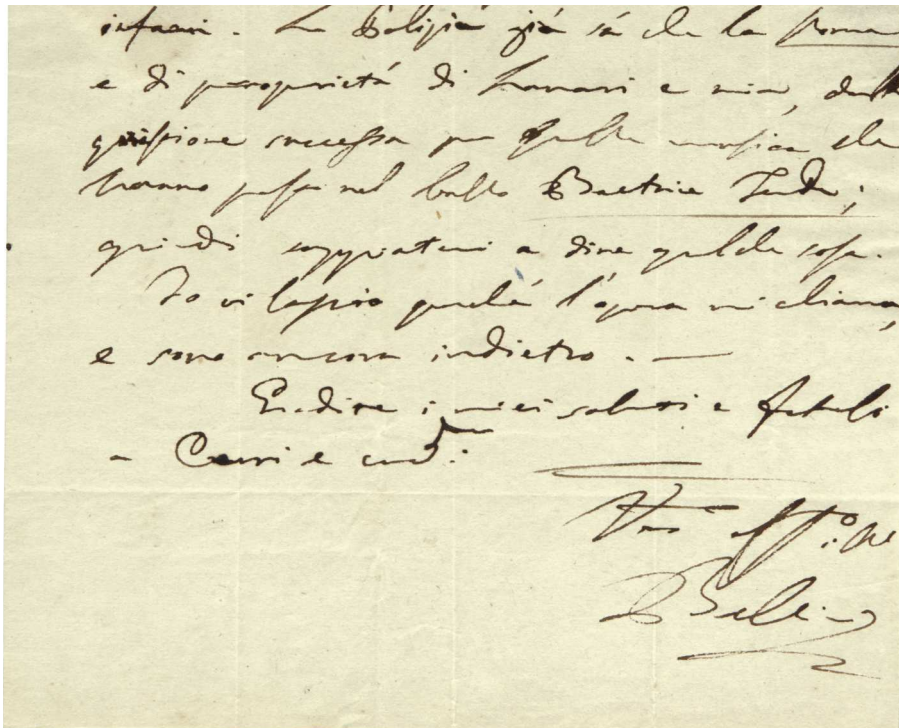 infami. La Polizia già sà che la Norma
e di proprietà di Lanari e mia, dalla
quistione successa per quella musica che
hanno posta nel ballo Beatrice Tenda;
quindi appiatevi a dire qualche cosa.
Io vi lascio perché l'opera mi chiama,
e sono ancora indietro. —
Gradite i miei saluti e fateli
a Conti e
Vro aff.mo
Bellini